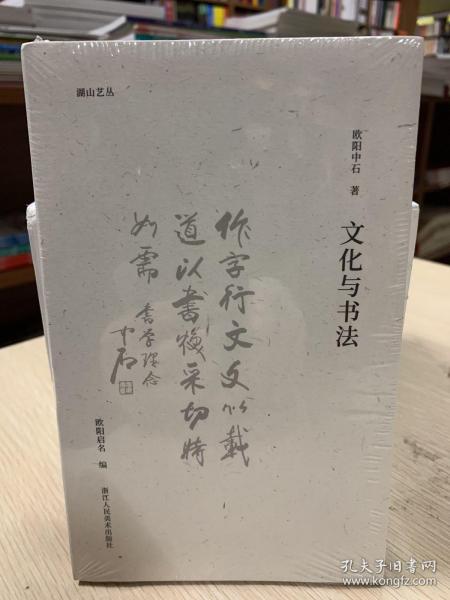 湖山艺丛
欧阳中石 著
文化与书法
作字行文文以载
道以書焕采切時
如需 書学理念
中石
欧阳启名 编
浙江人民美术出版社
孔夫子旧书网
www.kongfz.com